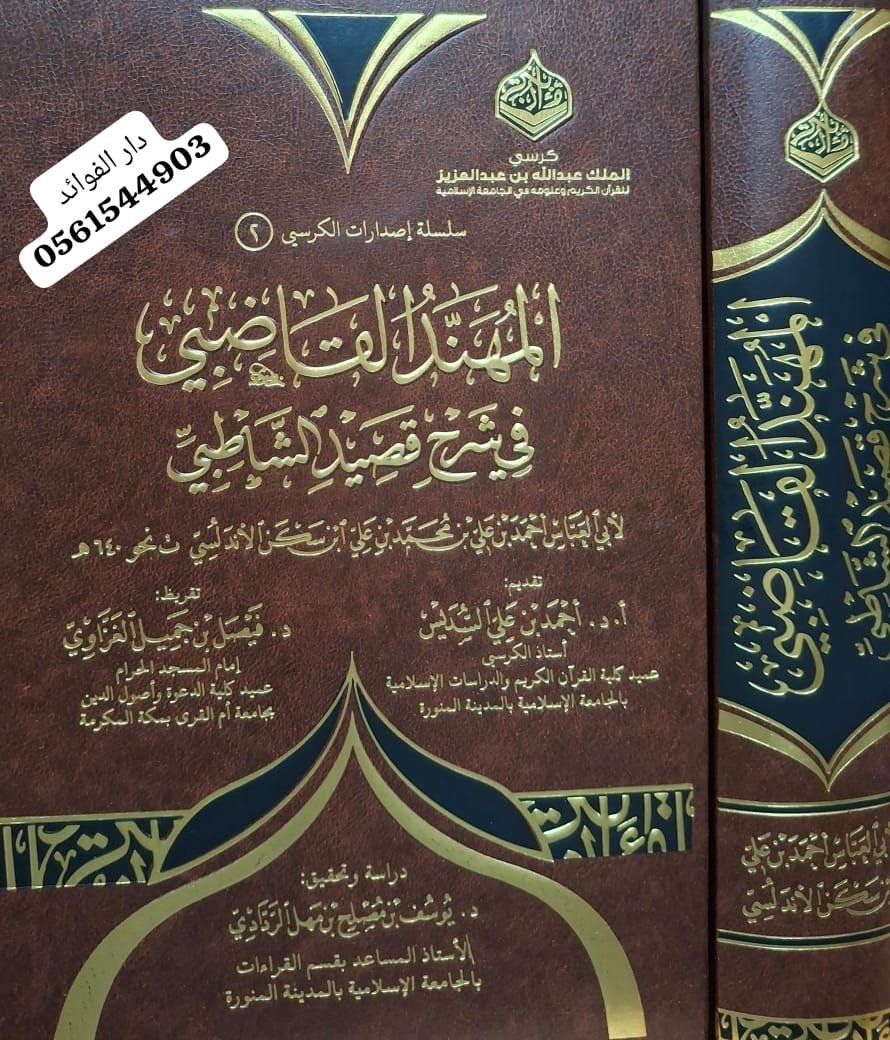 دار الفوائد
0561544903
كرسي
الملك عبدالله بن عبدالعزيز
للقرآن الكريم وعلومه في الجامعة الإسلامية
سلسلة إصدارات الكرسي ٢
المُهَنَّدُ القَاضِبِي
فِي شَرْحِ قَصِيدِ الشَّاطِبِيِّ
لأبي العباس أحمد بن علي بن محمد بن علي ابن سكن الأندلسي ت نحو ٦٤٠ هـ
تقديم:
أ. د. أحمد بن علي السديس
أستاذ الكرسي
عميد كلية القرآن الكريم والدراسات الإسلامية
بالجامعة الإسلامية بالمدينة المنورة
تقريظ:
د. فيصل بن جميل الغزاوي
إمام المسجد الحرام
عميد كلية الدعوة وأصول الدين
بجامعة أم القرى بمكة المكرمة
دراسة وتحقيق:
د. يوسف بن مصلح بن مهل الردادي
الأستاذ المساعد بقسم القراءات
بالجامعة الإسلامية بالمدينة المنورة
المُهَنَّدُ القَاضِبِي
في شرح قصيد الشاطبي
أبي العباس أحمد بن علي
ابن سكن الأندلسي